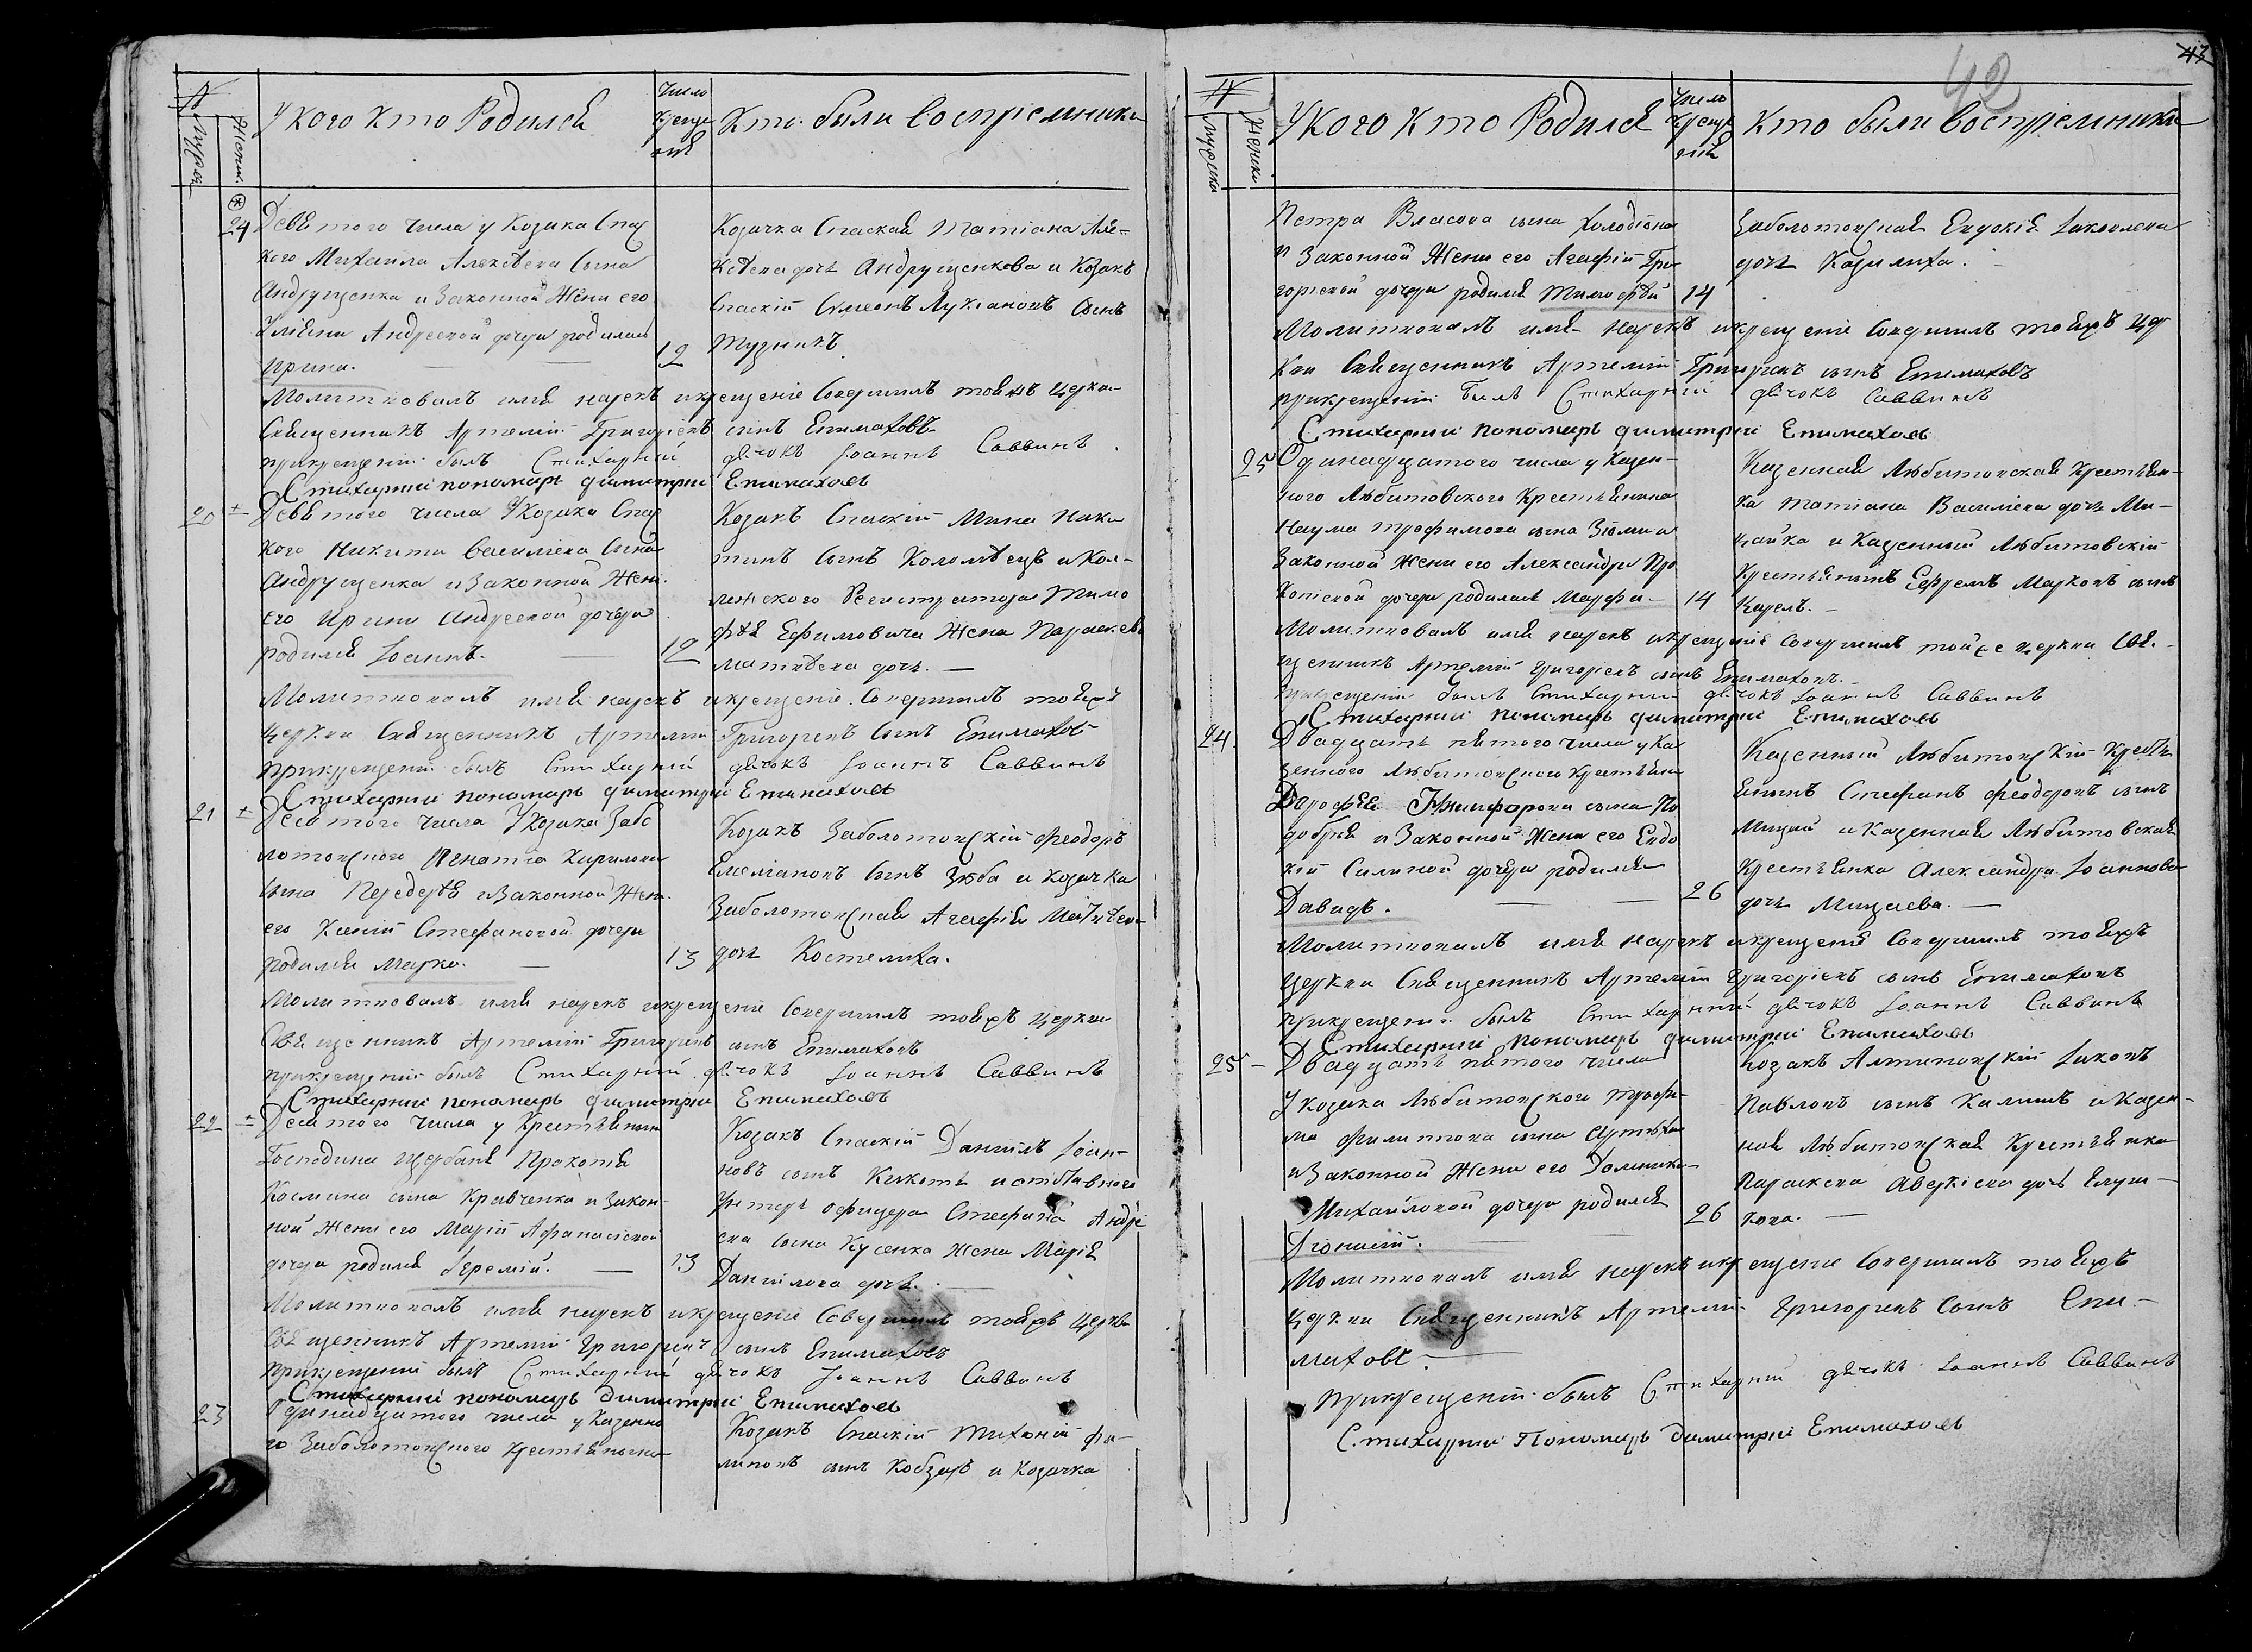 №
Мужск.
Женск.
У кого кто Родился
Число крещенія
Кто были Воспріемники
24
Девятого числа у Козака Спас
кого Михаила Алексѣева Сына
Андрущенка и Законной Жены его
Уліяны Андреевой дочери родилась
Ирина.
12
Козачка Спаская Татіана Але-
ксѣева дочь Андрущенкова и Козакъ
Спаскій Сѵмеонъ Лукіановъ Сынъ
Тузникъ.
Молитвовалъ имя нарекъ и крещеніе Совершилъ тояжъ церкви
Священникъ Артемій Григоріевъ сынъ Епимаховъ
при крещеніи былъ Стихарный дьячокъ Іоаннъ Саввинъ
Стихарный пономарь Димитрій Епимаховъ
20
Девятого числа У Козака Спас
кого Никити Василіева Сына
Андрущенка и Законной Жены
его Ирины Андреевой дочери
родился Іоаннъ.
12
Козакъ Спаскій Мина Ники
тинъ Сынъ Коломѣецъ и Кол-
лежского Регистратора Тимо
фѣя Ефимовича Жена Параскева
Матвѣева дочь.
Молитвовалъ имя нарекъ и крещеніе Совершилъ тояжъ
церкви Священникъ Артемій Григоріевъ Сынъ Епимаховъ
при крещеніи былъ Стихарный дьячокъ Іоаннъ Саввинъ
Стихарный пономарь Димитрій Епимаховъ
21
Десятого числа У Козака Забо
лотовского Игнатіа Кирилова
сына Передерѣя и Законной Жены
его Ксеніи Стефановой дочери
родился Марко.
13
Козакъ Заболотовскій Феодоръ
Емеліановъ Сынъ Зюба и козачка
Заболотовская Агафія Матвѣева
дочь Костелиха.
Молитвовалъ имя нарекъ и крещеніе Совершилъ тояжъ церкви
Священникъ Артемій Григоріевъ сынъ Епимаховъ
при крещеніи былъ Стихарный дьячокъ Іоаннъ Саввинъ
Стихарный пономарь Димитрій Епимаховъ
22
Десятого числа у Крестьянина
Господина Щербаня Прокопія
Космина сына Кравченка и Закон-
ной Жены его Маріи Афанасіевой
дочери родился Іеремій.
13
Козакъ Спаскій Даніилъ Іоан-
новъ сынъ Кикоть и отставного
Унтеръ офицера Стефана Андре
ева сына Кусенка Жена Марія
Даніилова дочь.
Молитвовалъ имя нарекъ и крещеніе Совершилъ тояжъ церкви
Священникъ Артемій Григоріевъ сынъ Епимаховъ
при крещеніи былъ Стихарный дьячокъ Іоаннъ Саввинъ
Стихарный пономарь Димитрій Епимаховъ
23
Одинадцатого числа у Казенно
го Заболотовского Крестьянина
Козакъ Спаскій Тихоній Фи-
липовъ сынъ Кобзарь и Козачка
43
42
№
Мужска
Женска
У Кого Кто Родился
Число Крещенія
Кто были Воспріемники
Петра Власова сына Холодіона
и Законной Жены его Агафіи Гри-
горіевой дочери родился Тимофѣй
14
Заболотовская Евдокія Іаковлева
дочь Казилиха.
Молитвовалъ имя нарекъ и крещеніе Совершилъ тояжъ цер
кви Священникъ Артемій Григоріевъ сынъ Епимаховъ
при крещеніи былъ Стихарный дьячокъ Саввинъ
Стихарный пономарь Димитрій Епимаховъ
25
Одинадцатого числа у Казен-
ного Любитовского Крестьянина
Наума Трофимова сына Зюми и
Законной Жены его Александры Про
копіевой дочери родилась Марфа.
14
Казенная Любитовская Крестьян-
ка Татіана Василіева дочь Ми-
цайка и Казенный Любитовскій
Крестьянинъ Ефремъ Марковъ сынъ
Карелъ.
Молитвовалъ имя нарекъ и крещеніе Совершилъ тойже церкви Свя-
щенникъ Артемій Григоріевъ сынъ Епимаховъ.
при крещеніи былъ Стихарный дьячокъ Іоаннъ Саввинъ
Стихарный пономарь Димитрій Епимаховъ
24.
Двадцать пятого числа у Ка
зенного Любитовского Крестьянина
Дорофѣя Никифорова сына По
добрія и Законной Жены его Евдо
кіи Силиной дочери родился
Давидъ.
26
Казенный Любитовскій Кресть
янинъ Стефанъ Феодоровъ сынъ
Мицай и Казенная Любитовская
Крестьянка Александра Іоаннова
дочь Мицаева.
Молитвовалъ имя нарекъ и крещеніе Совершилъ тояжъ
церкви Священникъ Артемій Григоріевъ сынъ Епимаховъ
при крещеніи былъ Стихарный дьячокъ Іоаннъ Саввинъ
Стихарный пономарь Димитрій Епимаховъ
25
Двадцать пятого числа
У козака Любитовского Трофи-
ма Филиппова сына
и Законной Жены его Домники
Михайловой дочери родился
Діонисій.
26
Козакъ Алтиновскій Іаковъ
Павловъ сынъ Калишъ и Казен-
ная Любитовская Крестьянка
Параскева Аверкіева дочь
кова.
Молитвовалъ имя нарекъ и крещеніе Совершилъ тояжъ
церкви Священникъ Артемій Григоріевъ Сынъ Епи-
маховъ.
При крещеніи былъ Стихарный дьячокъ Іоаннъ Саввинъ
Стихарный Пономарь Димитрій Епимаховъ